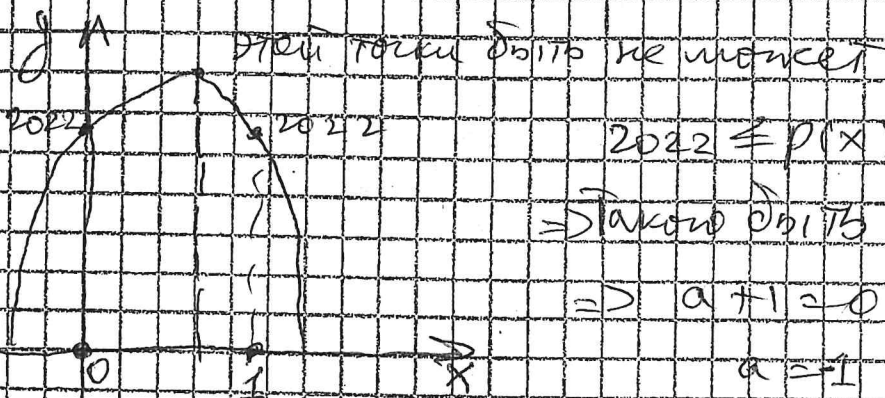 y этой точки быть не может
2022 2022 2022 ≤ P(x
=> Такого быть
=> a + 1 = 0
0 1 x a = -1